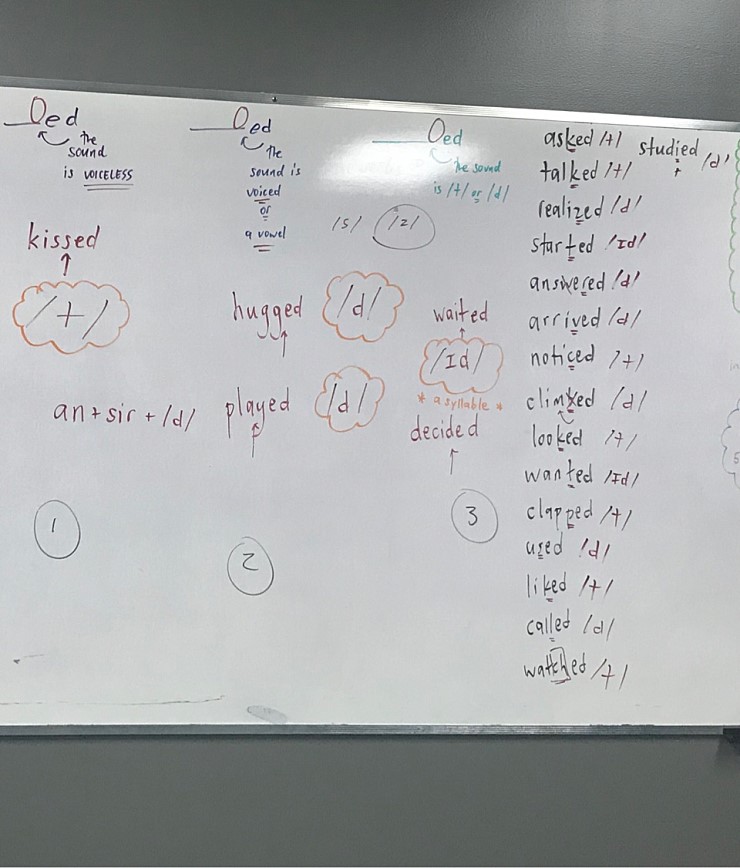 __Oed
the
sound
is VOICELESS
kissed
/t/
an + sir + /d/
1
__Oed
the
sound is
voiced
or
a vowel
/s/ /z/
hugged /d/
played /d/
2
__Oed
the sound
is /t/ or /d/
waited
/Id/
* a syllable *
decided
3
asked /t/
talked /t/
realized /d/
started /Id/
answered /d/
arrived /d/
noticed /t/
climbed /d/
looked /t/
wanted /Id/
clapped /t/
used /d/
liked /t/
called /d/
watched /t/
studied /d/